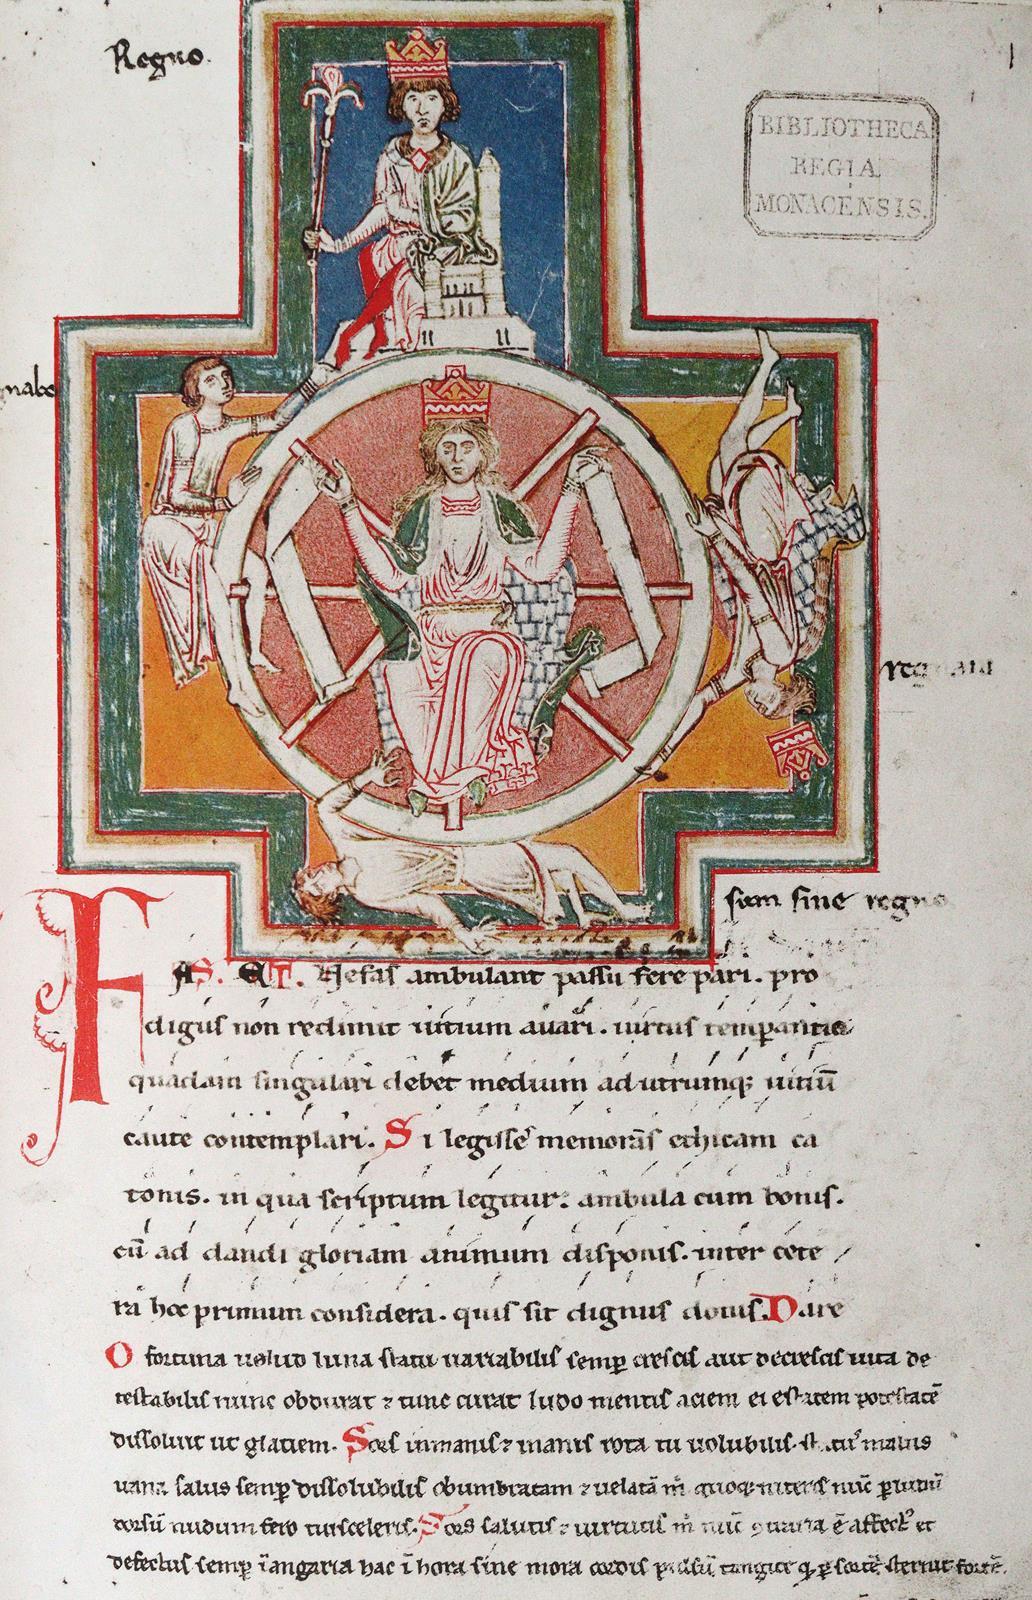 Regno.
BIBLIOTHECA
REGIA
MONACENSIS.
nabo
regnaui
sum sine regno
FAS. ET. Nefas ambulant passu fere pari. pro
digus non redimit uitium auari. uirtus temperantia
quadam singulari debet medium ad utrumq; uitiū
caute contemplari. Si legisse memoras ethicam ca
tonis. in qua scriptum legitur. ambula cum bonis.
cū ad dandi gloriam animum disponis. inter cete
ra hoc primum considera. quis sit dignus donis. Dare
O fortuna uelud luna statu uariabilis semp crescis aut decrescis uita de
testabilis nunc obdurat ⁊ tunc curat ludo mentis aciem egestatem potestatē
dissoluit ut glaciem. Sors inmanis ⁊ inanis rota tu uolubilis. status malus
uana salus semp dissolubilis obumbratam ⁊ uelatā m quoq; niteris nūc p ludū
dorsū nudum fero tui sceleris. Sors salutis ⁊ uirtutis m nūc 9traria ē affect9 et
defectus semp ī angaria hac ī hora sine mora cordis pulsū tangite q p sortē sternit fortē